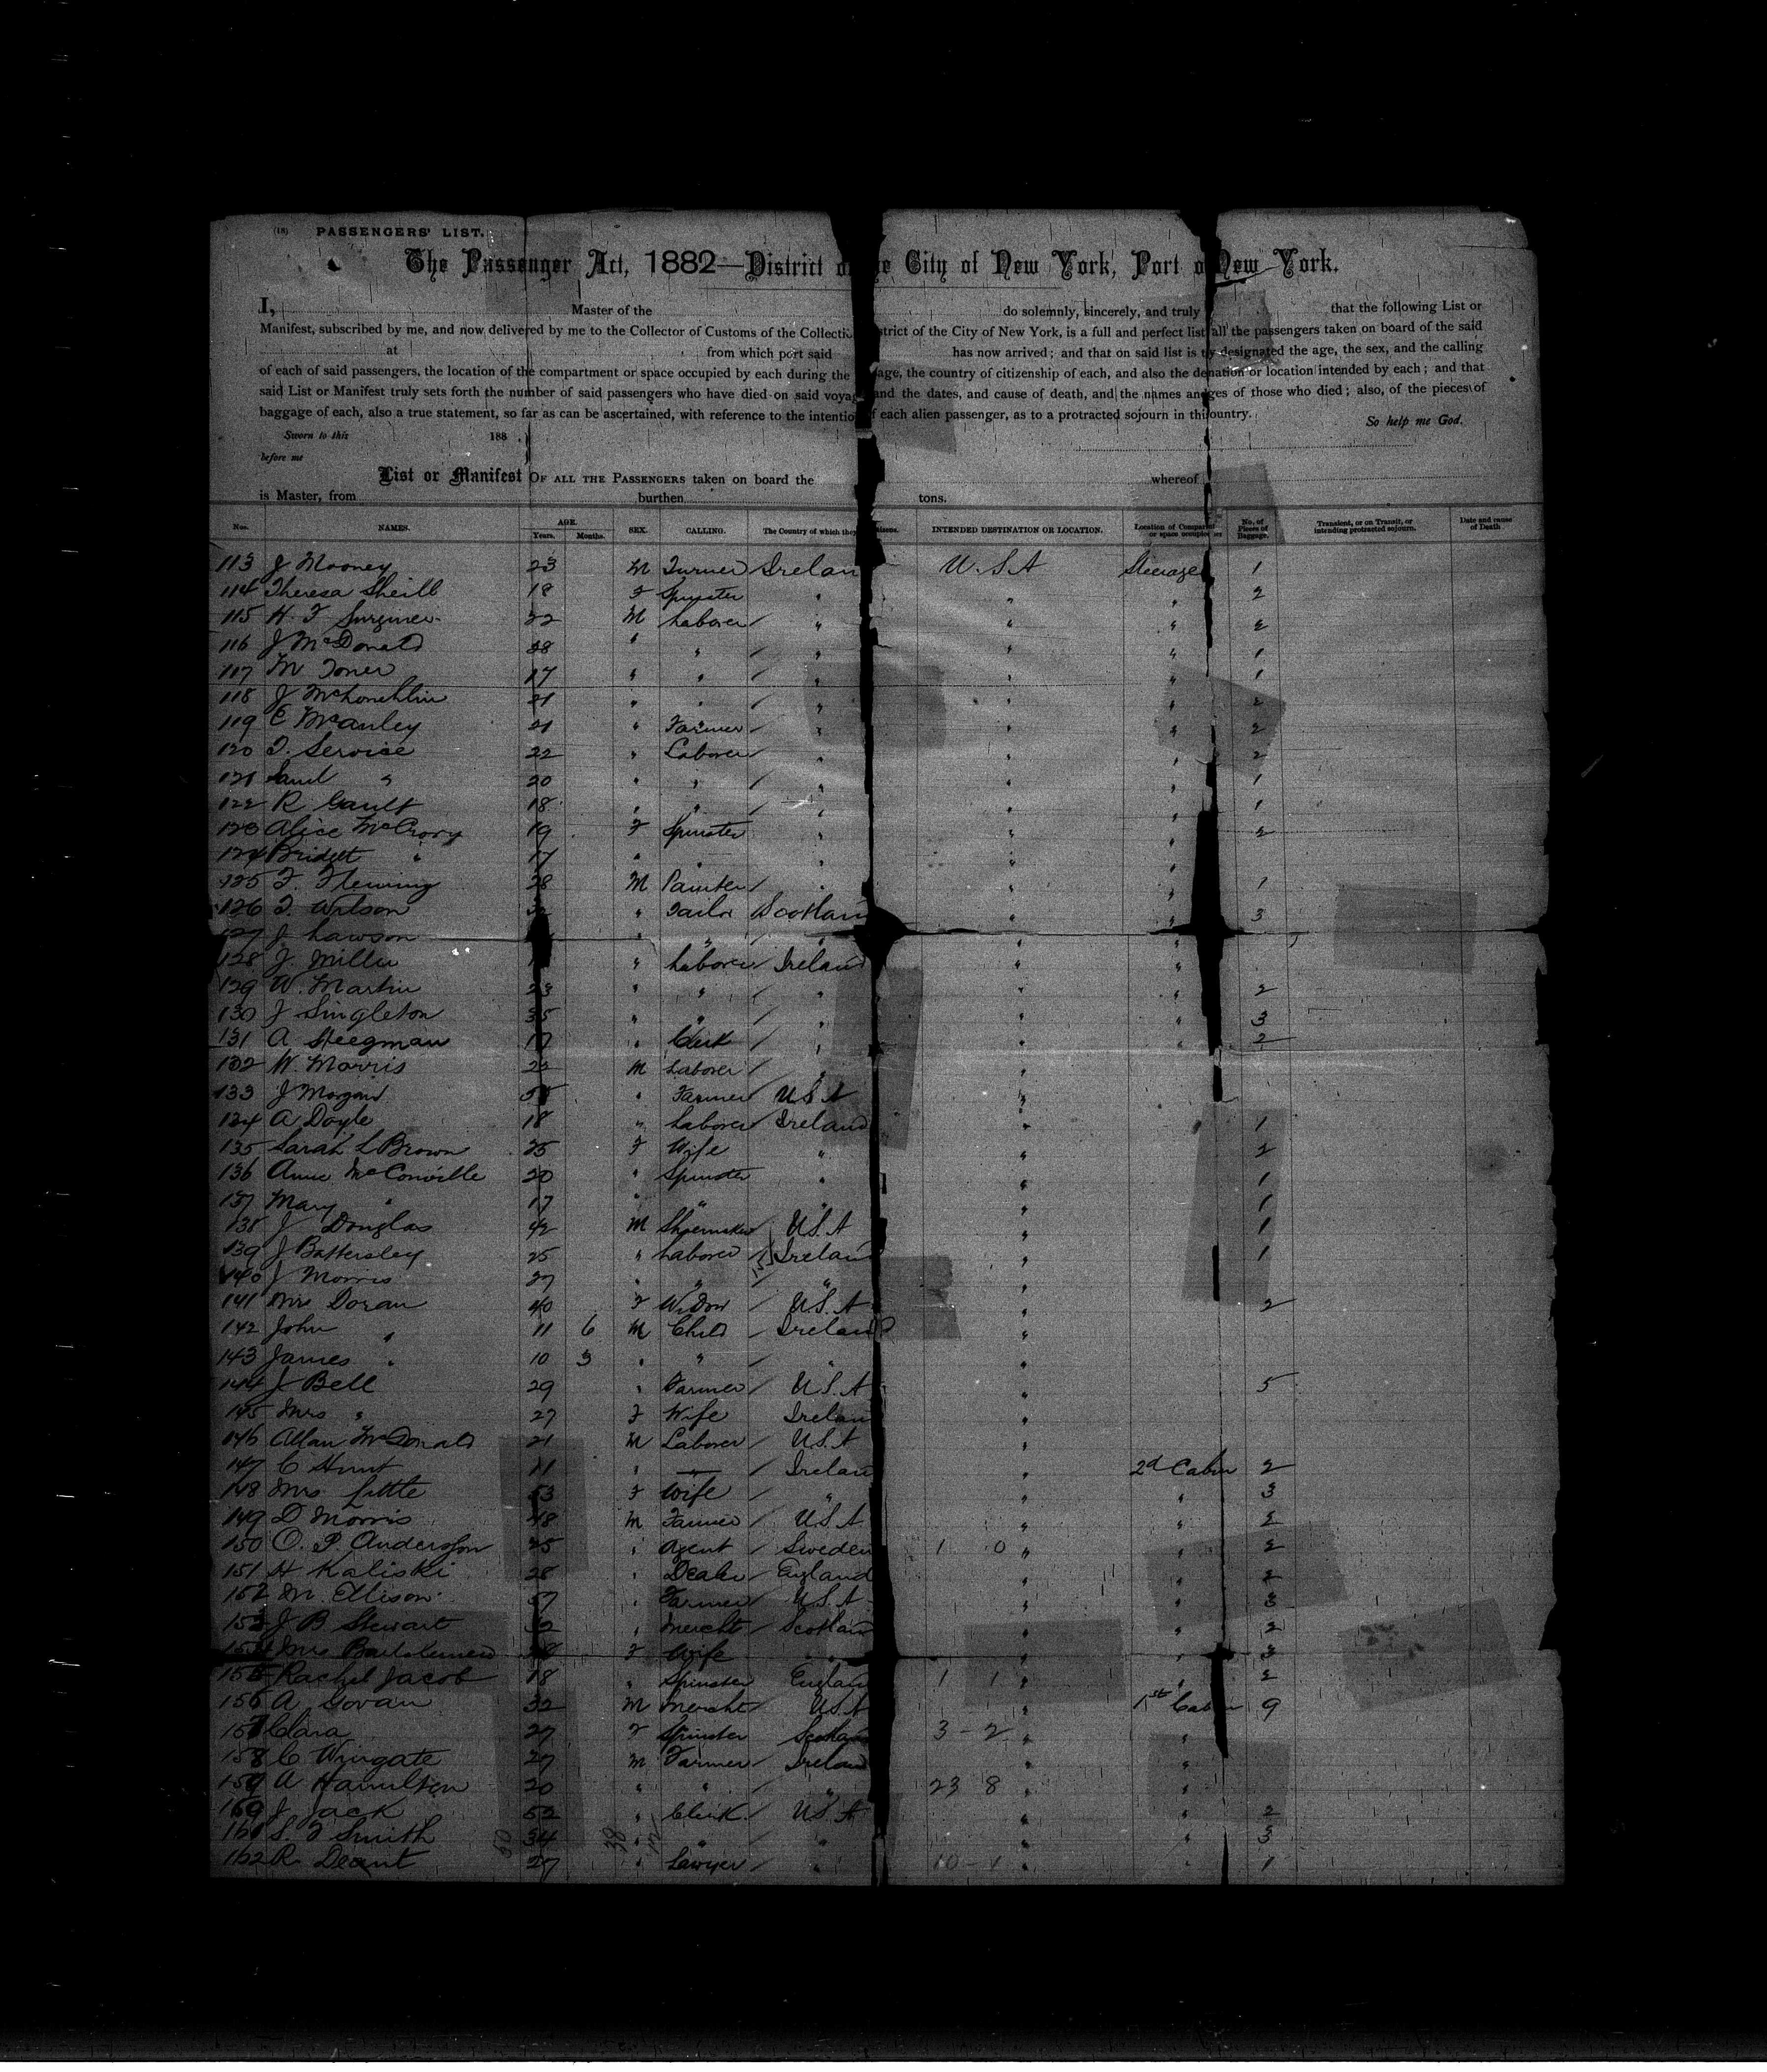 (18) PASSENGERS' LIST.
The Passenger Act, 1882—District of the City of New York, Port of New York.
I, Master of the do solemnly, sincerely, and truly that the following List or
Manifest, subscribed by me, and now delivered by me to the Collector of Customs of the Collection District of the City of New York, is a full and perfect list all the passengers taken on board of the said
at from which port said has now arrived; and that on said list is designated the age, the sex, and the calling
of each of said passengers, the location of the compartment or space occupied by each during the voyage, the country of citizenship of each, and also the destination or location intended by each; and that
said List or Manifest truly sets forth the number of said passengers who have died on said voyage and the dates, and cause of death, and the names and ages of those who died; also, of the pieces of
baggage of each, also a true statement, so far as can be ascertained, with reference to the intention of each alien passenger, as to a protracted sojourn in this country. So help me God.
Sworn to this 188
before me
List or Manifest OF ALL THE PASSENGERS taken on board the whereof
is Master, from burthen tons.
Nos. NAMES. AGE. Years. Months. SEX. CALLING. The Country of which they Citizens. INTENDED DESTINATION OR LOCATION. Location of Compartment or space occupied No. of Pieces of Baggage. Transient, or on Transit, or intending protracted sojourn. Date and cause of Death
113 J Mooney 23 M Turner Irelan U.S.A Steerage 1
114 Theresa Sheill 18 F Spinster " " " 2
115 H. F 22 M Laborer " " " 2
116 J McDonald " " " " " 1
117 M Toner 17 " " " " " 1
118 J McLouchlin 21 " " " " " 2
119 C McAuley 21 " Farmer " " " 2
120 T. Service 22 " Laborer " " " 2
121 Saml " 20 " " " " " 1
122 R Gault 18 " " " " " 1
123 Alice McCrory 19 F Spinster " " " 2
124 Bridget " 17 " " " " "
125 F. Fleming 28 M Painter " " " 1
126 T. Wilson " Tailor Scotlan " " 3
127 J Lawson " " " " "
128 J. Miller " Laborer Ireland " "
129 W. Martin 23 " " " " " 2
130 J Singleton 35 " " " " " 3
131 A Steegman 17 " Clerk " " " 2
132 W. Morris M Laborer " "
133 J Morgan " Farmer U.S.A "
134 A Doyle 18 " Laborer Ireland " 1
135 Sarah L Brown 25 F Wife " " 2
136 Annie McConville 20 " Spinster " " 1
137 Mary " 17 " " " " 1
138 J Douglas 42 M Shoemaker U.S.A " 1
139 J Battersley 25 " Laborer Ireland " 1
140 J Morris 27 " " " "
141 Mrs Doran 40 F Widow U.S.A " 2
142 John " 11 6 M Child Ireland "
143 James " 10 3 " " " "
144 J Bell 29 " Farmer U.S.A " 5
145 Mrs " 27 F Wife Irelan "
146 Allan McDonald 21 M Laborer U.S.A "
147 C Hunt 11 " — Irelan " 2d Cabin 2
148 Mrs Little 53 F Wife " " " 3
149 D Morris 48 M Farmer U.S.A " " 2
150 O. P. Anderson 25 " Agent Sweden 1 0 " " 2
151 H Kaliski 28 " Dealer England " " 2
152 M. Ellison 57 " Farmer U.S.A " " 3
153 J B Stewart 32 " Mercht Scotlan " " 2
154 Mrs F Wife " " " 3
155 Rachel Jacob 18 " Spinster Englan 1 1 " " 2
156 A Govan 32 M Mercht U.S.A 1st Cabin 9
157 Clara 27 F Spinster Scotlan 3 - 2 " "
158 C Wingate 27 M Farmer Irelan " "
159 A Hamilton 20 " " " 23 8 " "
160 J Jack 52 " Clerk U.S.A " " 2
161 S. F Smith 34 " " " " " 3
162 R 27 " Lawyer " 10 - 1 " " 1